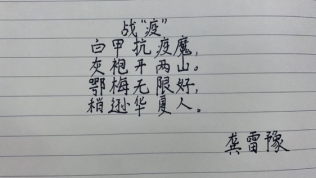 战“疫”
白甲抗疫魔,
灰袍开两山。
鄂梅无限好,
稍逊华夏人。
龚雷豫